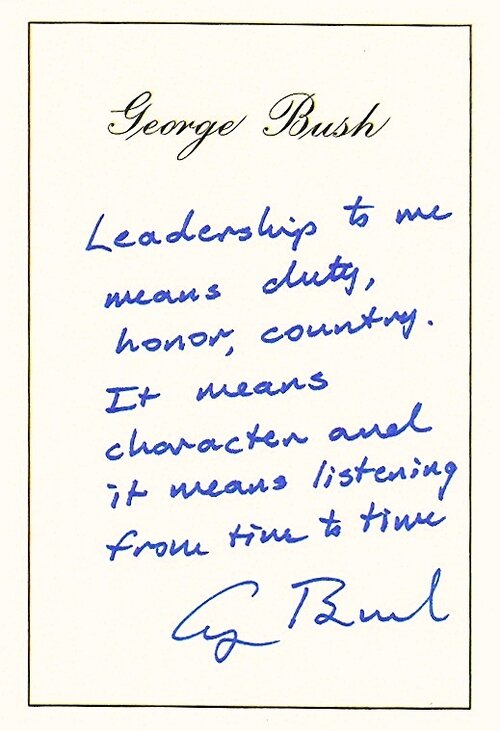 George Bush
Leadership to me
means duty,
honor, country.
It means
character and
it means listening
from time to time
G Bush